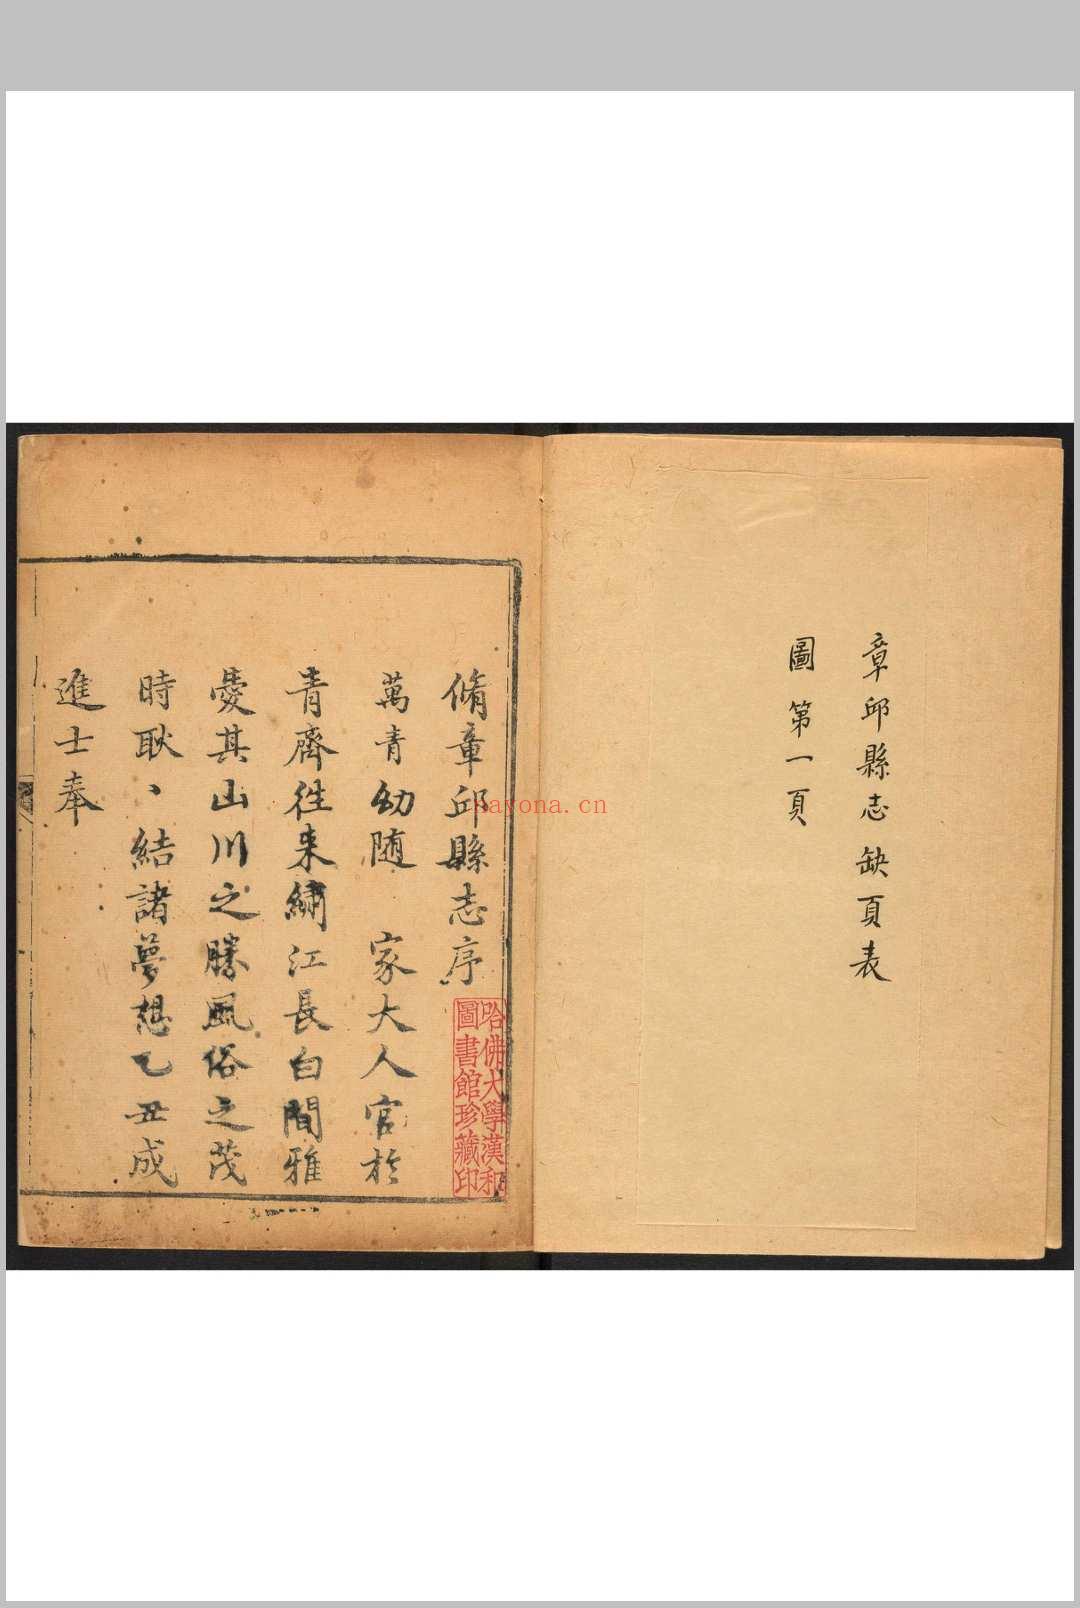 章邱縣志缺頁表
圖第一頁
脩章邱縣志序
萬青幼随 家大人官於
青齊徃来繡江長白間雅
愛其山川之勝風俗之茂
時耿、結諸夢想乙丑成
進士奉
哈佛大學漢和
圖書館珍藏印
sayona.cn